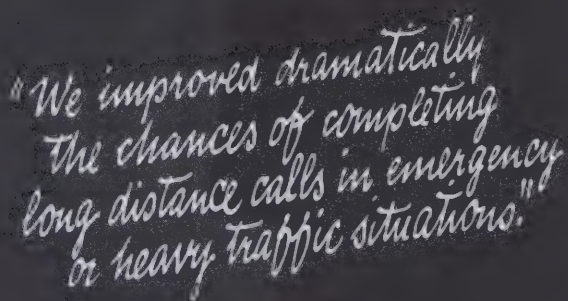 "We improved dramatically
the chances of completing
long distance calls in emergency
or heavy traffic situations."